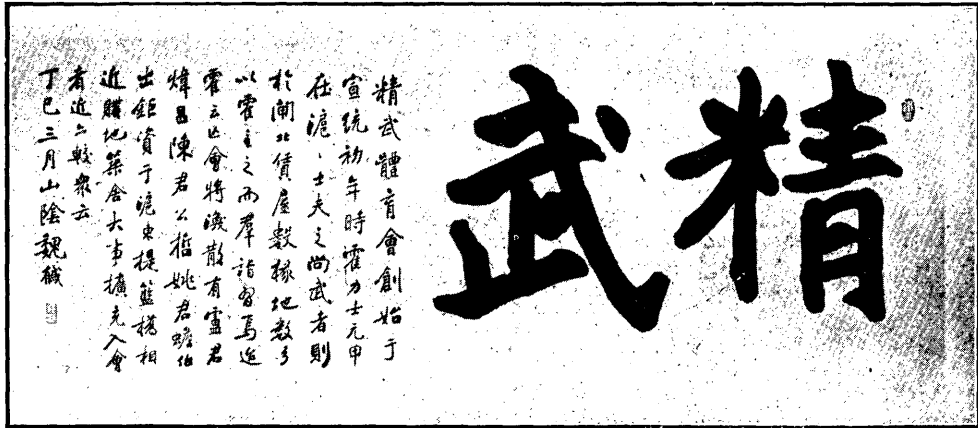 精武
精武體育會創始于
宣統初年時霍力士元甲
在滬、士夫之尚武者則
於閘北賃屋數椽地數弓
以霍主之而羣詣習焉迨
霍云亡會將渙散有盧君
煒昌陳君公哲姚君蟾伯
出鉅資于滬東提籃橋相
近購地築舍大事擴充入會
者近亦較衆云
丁巳三月山陰魏戫